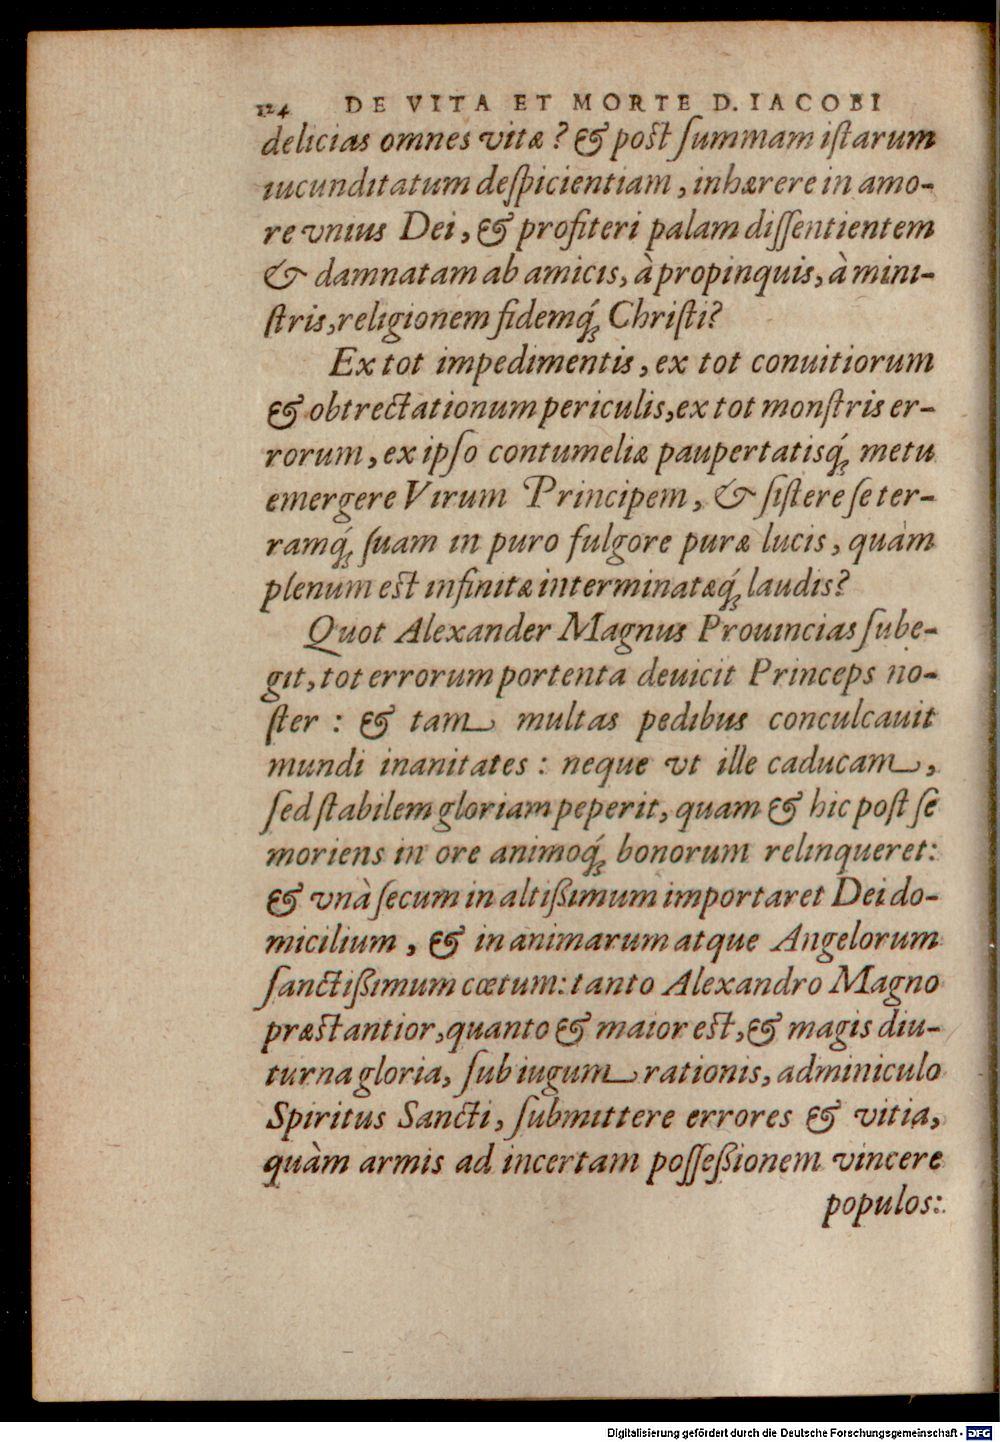 124 DE VITA ET MORTE D. IACOBI
delicias omnes vitæ? & post ſummam iſtarum
iucunditatum deſpicientiam, inhærere in amo-
re vnius Dei, & profiteri palam diſſentientem
& damnatam ab amicis, à propinquis, à mini-
ſtris, religionem fidemq́; Chriſti?
Ex tot impedimentis, ex tot conuitiorum
& obtrectationum periculis, ex tot monſtris er-
rorum, ex ipſo contumeliæ paupertatisq́; metu
emergere Virum Principem, & ſiſtere ſe ter-
ramq́; ſuam in puro fulgore puræ lucis, quàm
plenum est infinitæ interminatæq́; laudis?
Quot Alexander Magnus Prouincias ſube-
git, tot errorum portenta deuicit Princeps no-
ſter: & tam multas pedibus conculcauit
mundi inanitates: neque vt ille caducam,
ſed ſtabilem gloriam peperit, quam & hic poſt ſe
moriens in ore animoq́; bonorum relinqueret:
& vnà ſecum in altißimum importaret Dei do-
micilium, & in animarum atque Angelorum
ſanctißimum cœtum: tanto Alexandro Magno
præstantior, quanto & maior est, & magis diu-
turna gloria, ſub iugum rationis, adminiculo
Spiritus Sancti, ſubmittere errores & vitia,
quàm armis ad incertam poſſeßionem vincere
populos:
Digitalisierung gefördert durch die Deutsche Forschungsgemeinschaft - DFG